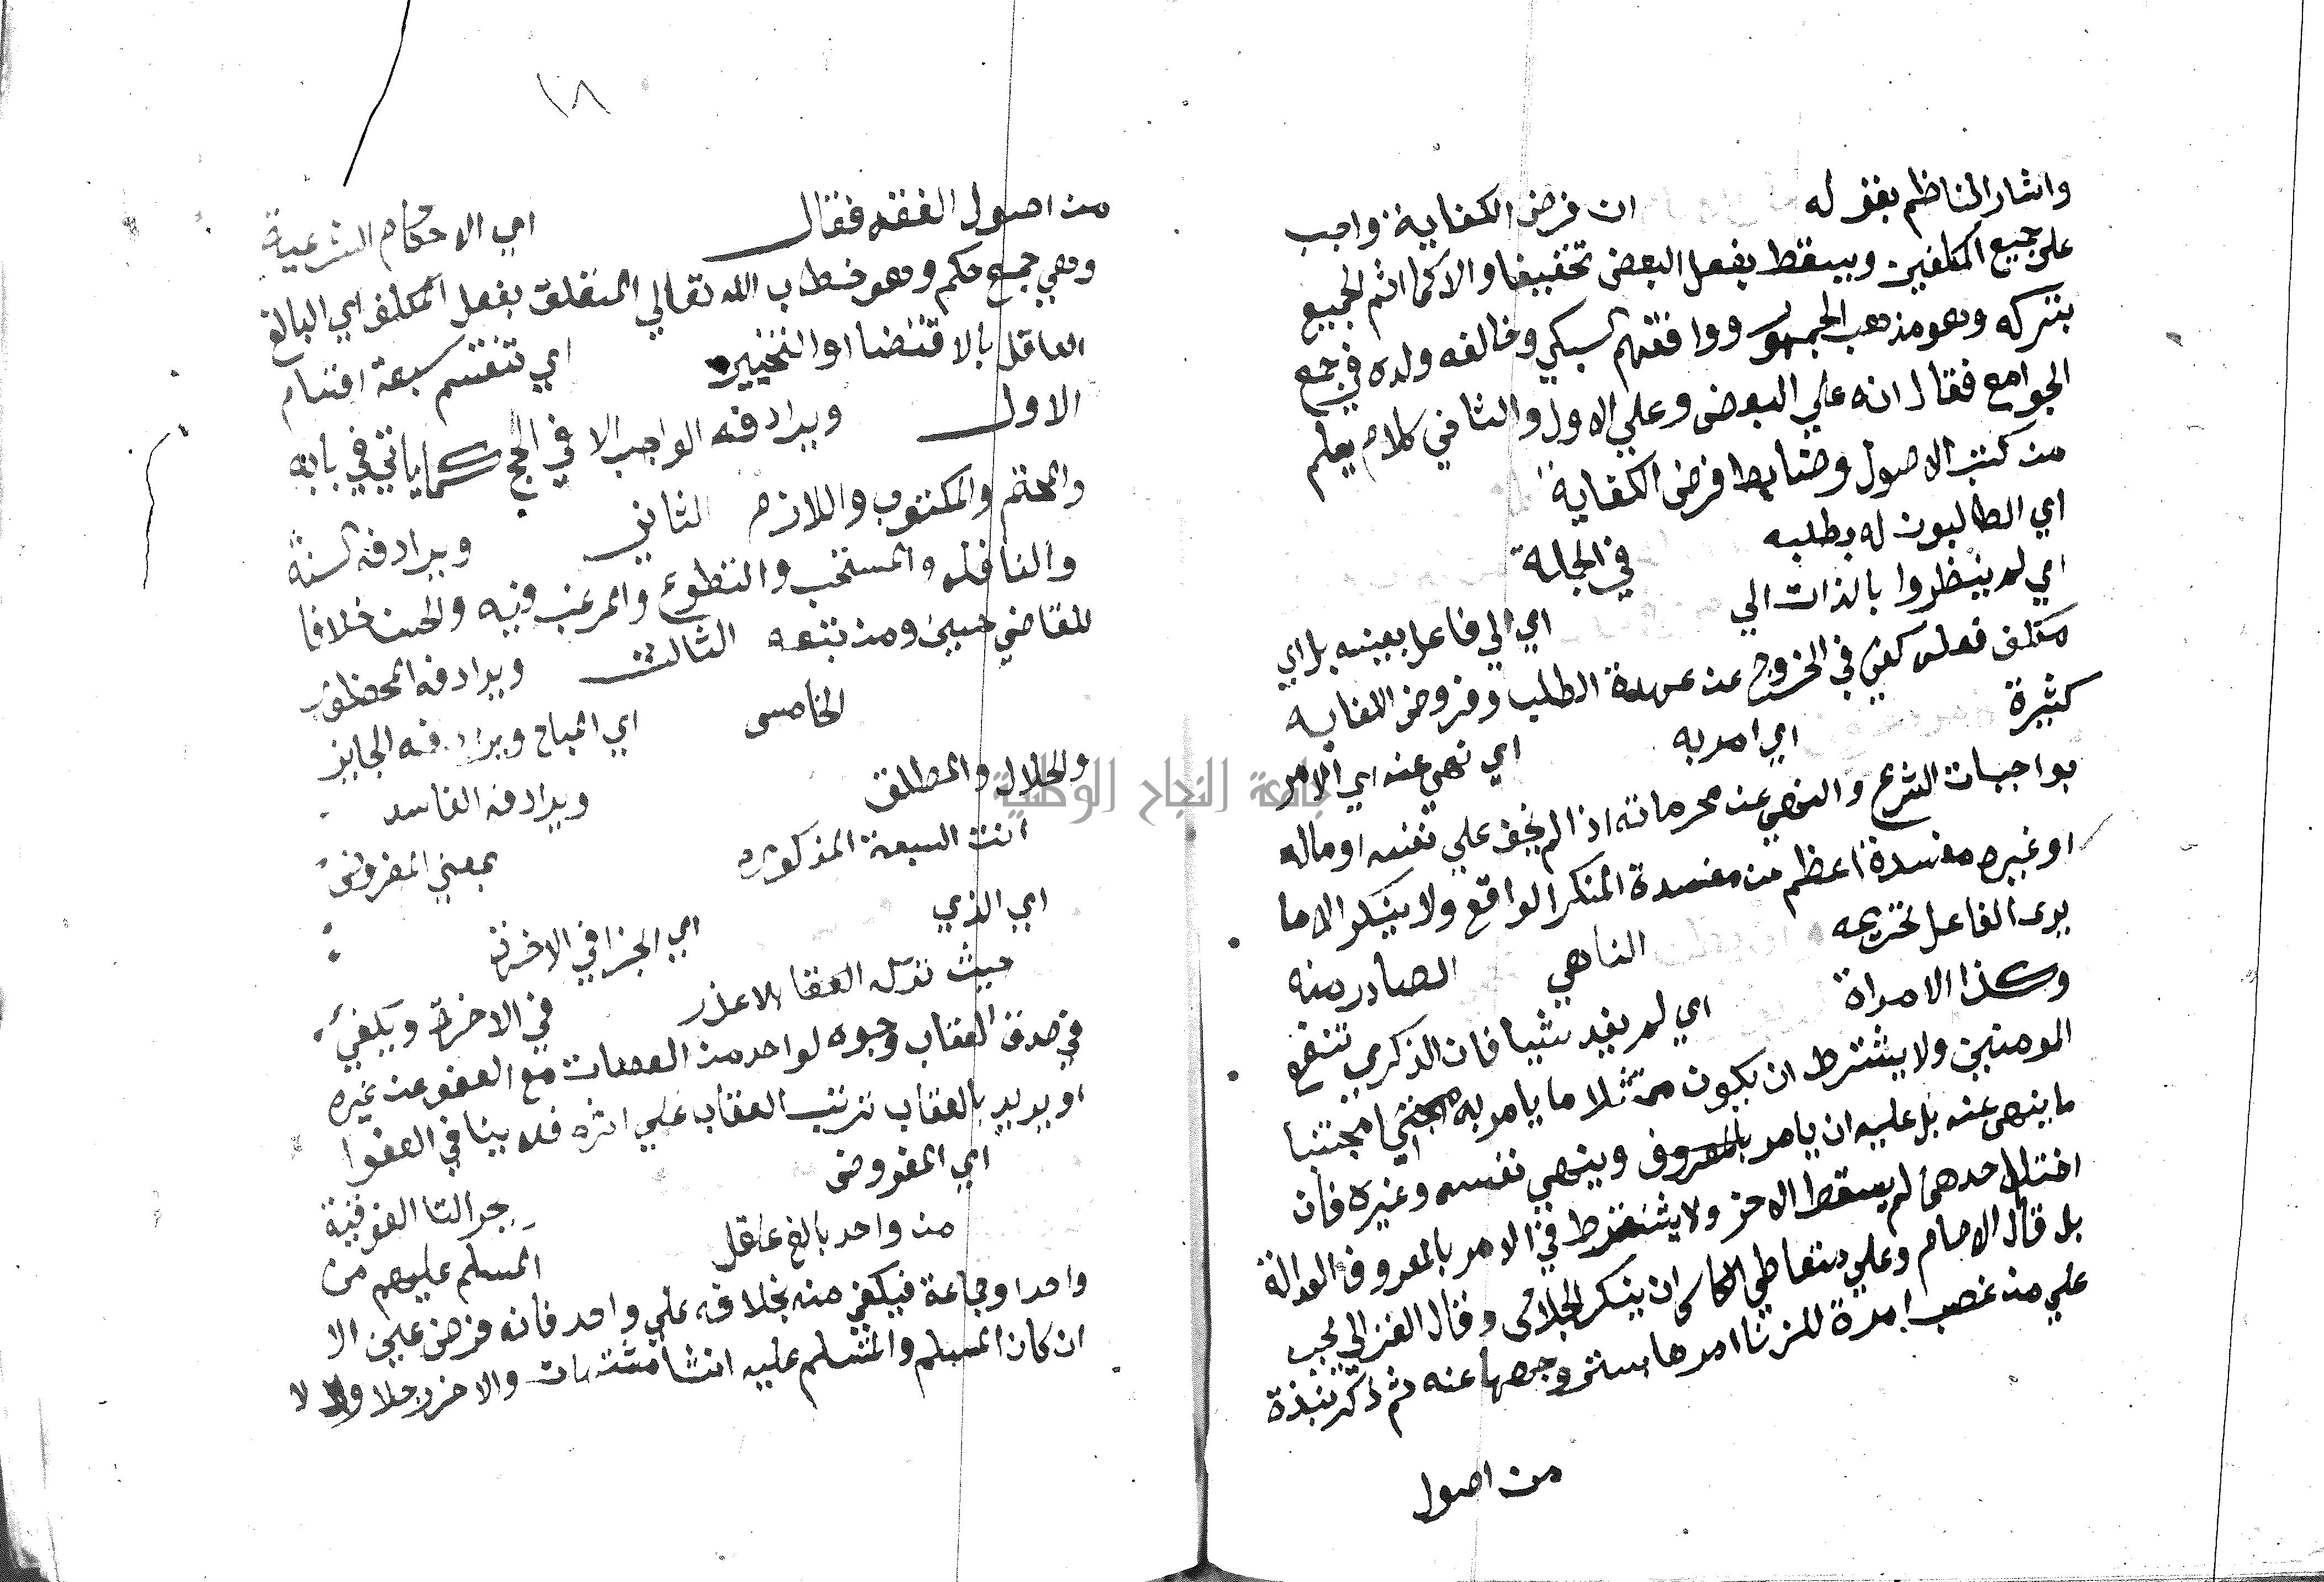 واشار الناظم بقوله ان فرض الكفاية واجب
على جميع المكلفين ويسقط بفعل البعض تخفيفا والا كما اثم الجميع
بتركه وهو مذهب الجمهور ووافقهم السبكي وخالفه ولده في جمع
الجوامع فقال انه علي البعض وعلي الاول والثاني كلام يعلم
من كتب الاصول وضابط فرض الكفاية
اي الطالبون له بطلبه في الجملة
اي لم ينظروا بالذات الي اي الي فاعل بعينه بل اي
مكلف فعله كفي في الخروج عن عهدة الطلب وفروض الكفاية
كثيرة اي امر به اي نهي عنه اي الامر
بواجبات الشرع والنهي عن محرماته اذا لم يخف علي نفسه او ماله
او غيره مفسدة اعظم من مفسدة المنكر الواقع ولا ينكر الا ما
يرى الفاعل تحريمه الناهي الصادر منه
وكذا الامراة اي لم يفد شيا فان الذكري تنفع
المومنين ولا يشترط ان يكون ممتثلا ما يامر به مجتنبا
ما ينهى عنه بل عليه ان يامر بالمعروف وينهي نفسه وغيره فان
اختل احدهما لم يسقط الاخر ولا يشترط في الامر بالمعروف العدالة
بل قال الامام وعلي متعاطي الكاس ان ينكر الجلاس وقال الغزالي يجب
علي من غصب امرة للزنا امرها بستر وجهها عنه ثم ذكر نبذة
من اصول
١٨
من اصول الفقه فقال اي الاحكام الشرعية
وهي جمع حكم وهو خطاب الله تعالي المتعلق بفعل المكلف اي البالغ
العاقل بالاقتضا او التخيير اي تنقسم سبعة اقسام
الاول ويرادفه الواجب الا في الحج كما ياتي في بابه
والمحتم والمكتوب واللازم الثاني ويرادفه السنة
والنافلة والمستحب والتطوع والمرغب فيه والحسن خلافا
للقاضي حسين ومن تبعه الثالث ويرادفه المحظور
الخامس اي المباح ويرادفه الجايز
والحلال والمطلق ويرادفه الفاسد
انت السبعة المذكورة بمعني المفروض
اي الذي اي الجزا في الاخرة
حيث ترك العقا بلا عذر في الاخرة ويكفي
في صدق العقاب وجوه لواحد من العصات مع العفو عن غيره
او يريد بالعقاب ترتب العقاب علي اثره فلا ينافي العفوا
اي المفروض
من واحد بالغ عاقل جر التا الفوقية
المسلم عليهم من
واحدا وجماعة فيكفي منه بخلافه علي واحد فانه فرض عين الا
ان كان المسلم والمسلم عليه انثا مشتهات والاخر رجلا ولا
جامعة النجاح الوطنية